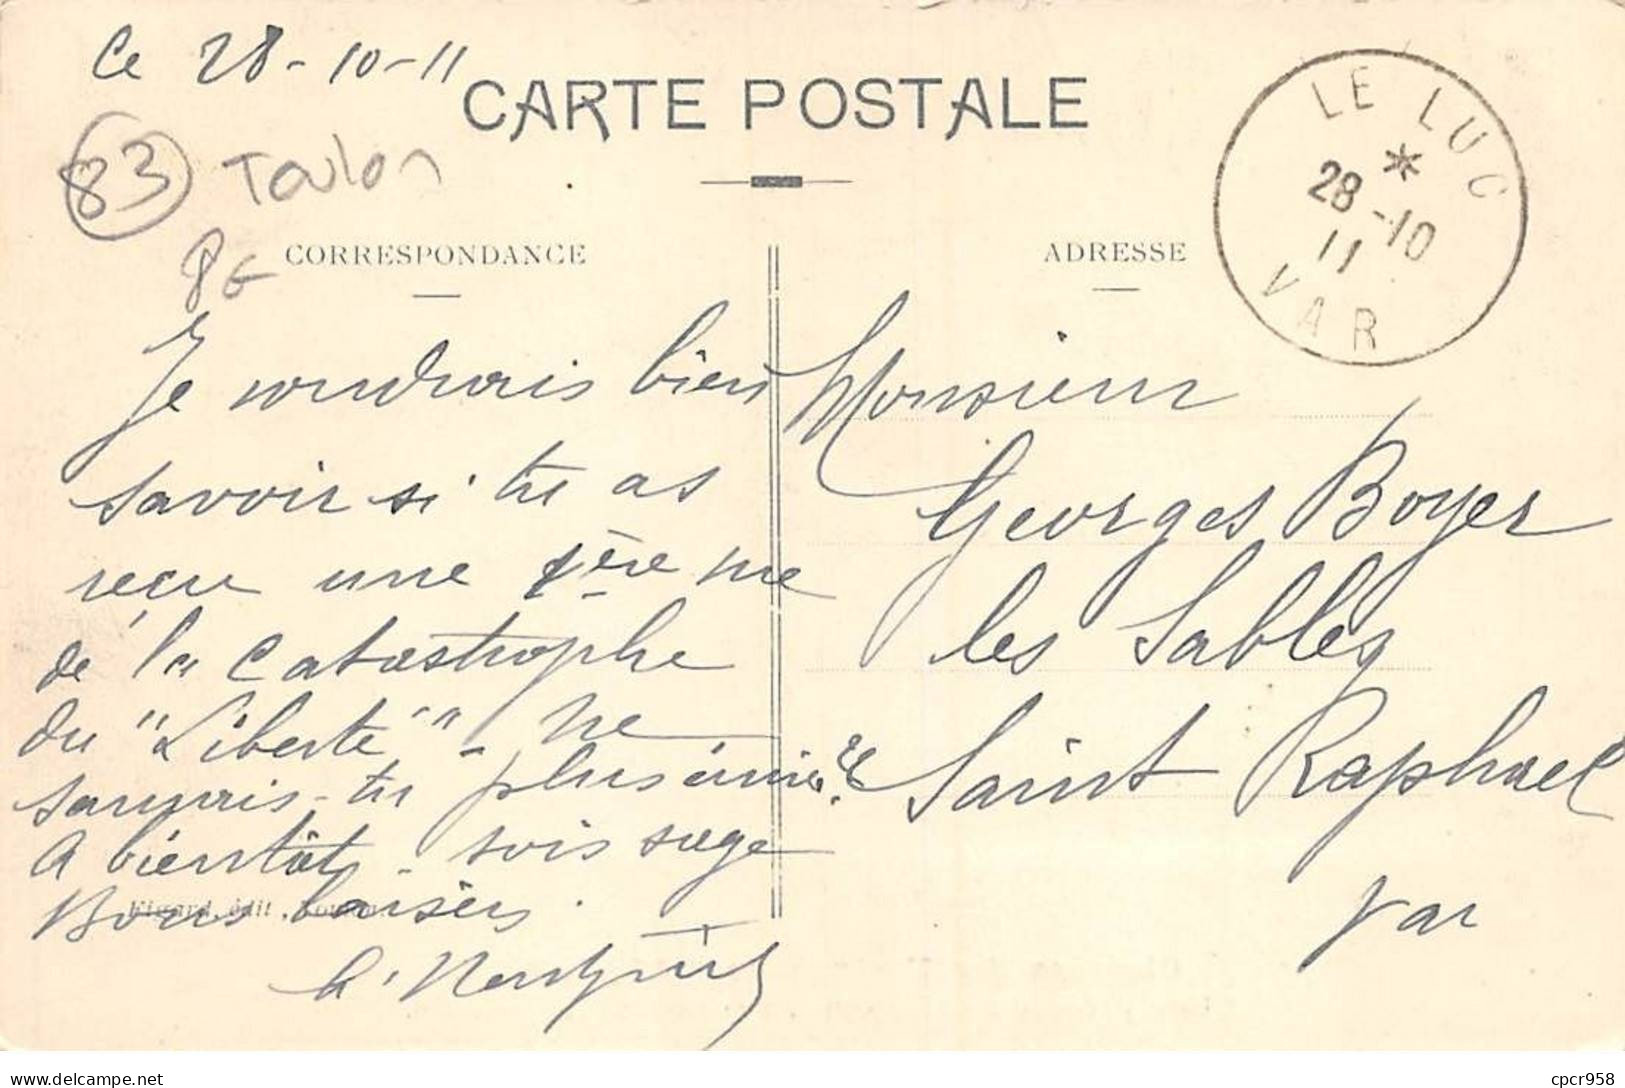 Ce 28-10-11
CARTE POSTALE
83 Toulon
8€
CORRESPONDANCE
ADRESSE
LE LUC
*
28-10
11
VAR
Je voudrais bien
savoir si tu as
reçu une 1ère vue
de la catastrophe
du "Liberté" - ne
saurais-tu plus écrire?
A bientôt - sois sage
Bons baisers.
Monsieur
Georges Boyer
les Sables
Saint Raphael
Var
édit.
delcampe.net
cpcr958